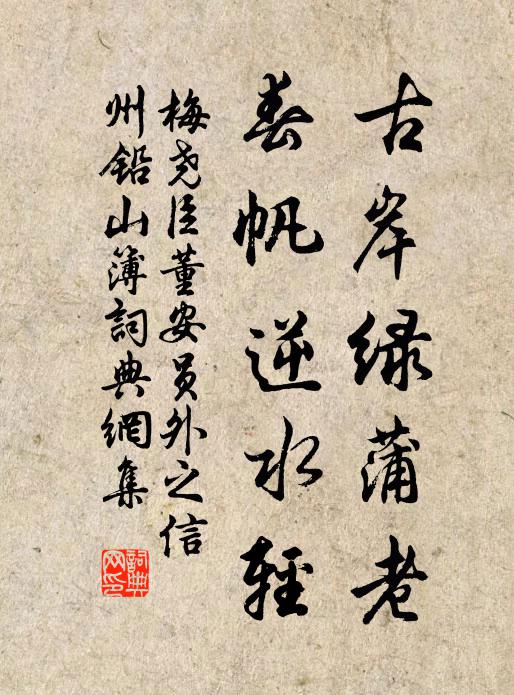 古岸绿蒲老
春帆逆水轻
梅尧臣董安员外之信
州铅山簿詞典網集
詞典
网印